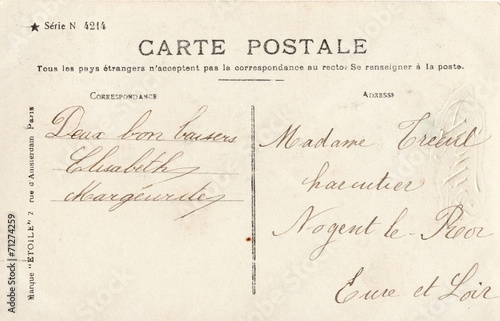 ★ Série N 4214
CARTE POSTALE
Tous les pays étrangers n'acceptent pas la correspondance au recto: Se renseigner à la poste.
CORRESPONDANCE
Deux bon baisers
Elisabeth
Margéurite
ADRESSE
Madame Treuil
charcutier
Nogent le-Roi
Eure et Loir
Marque "ÉTOILE" 7 rue d'Amsterdam Paris
Adobe Stock | #71274259